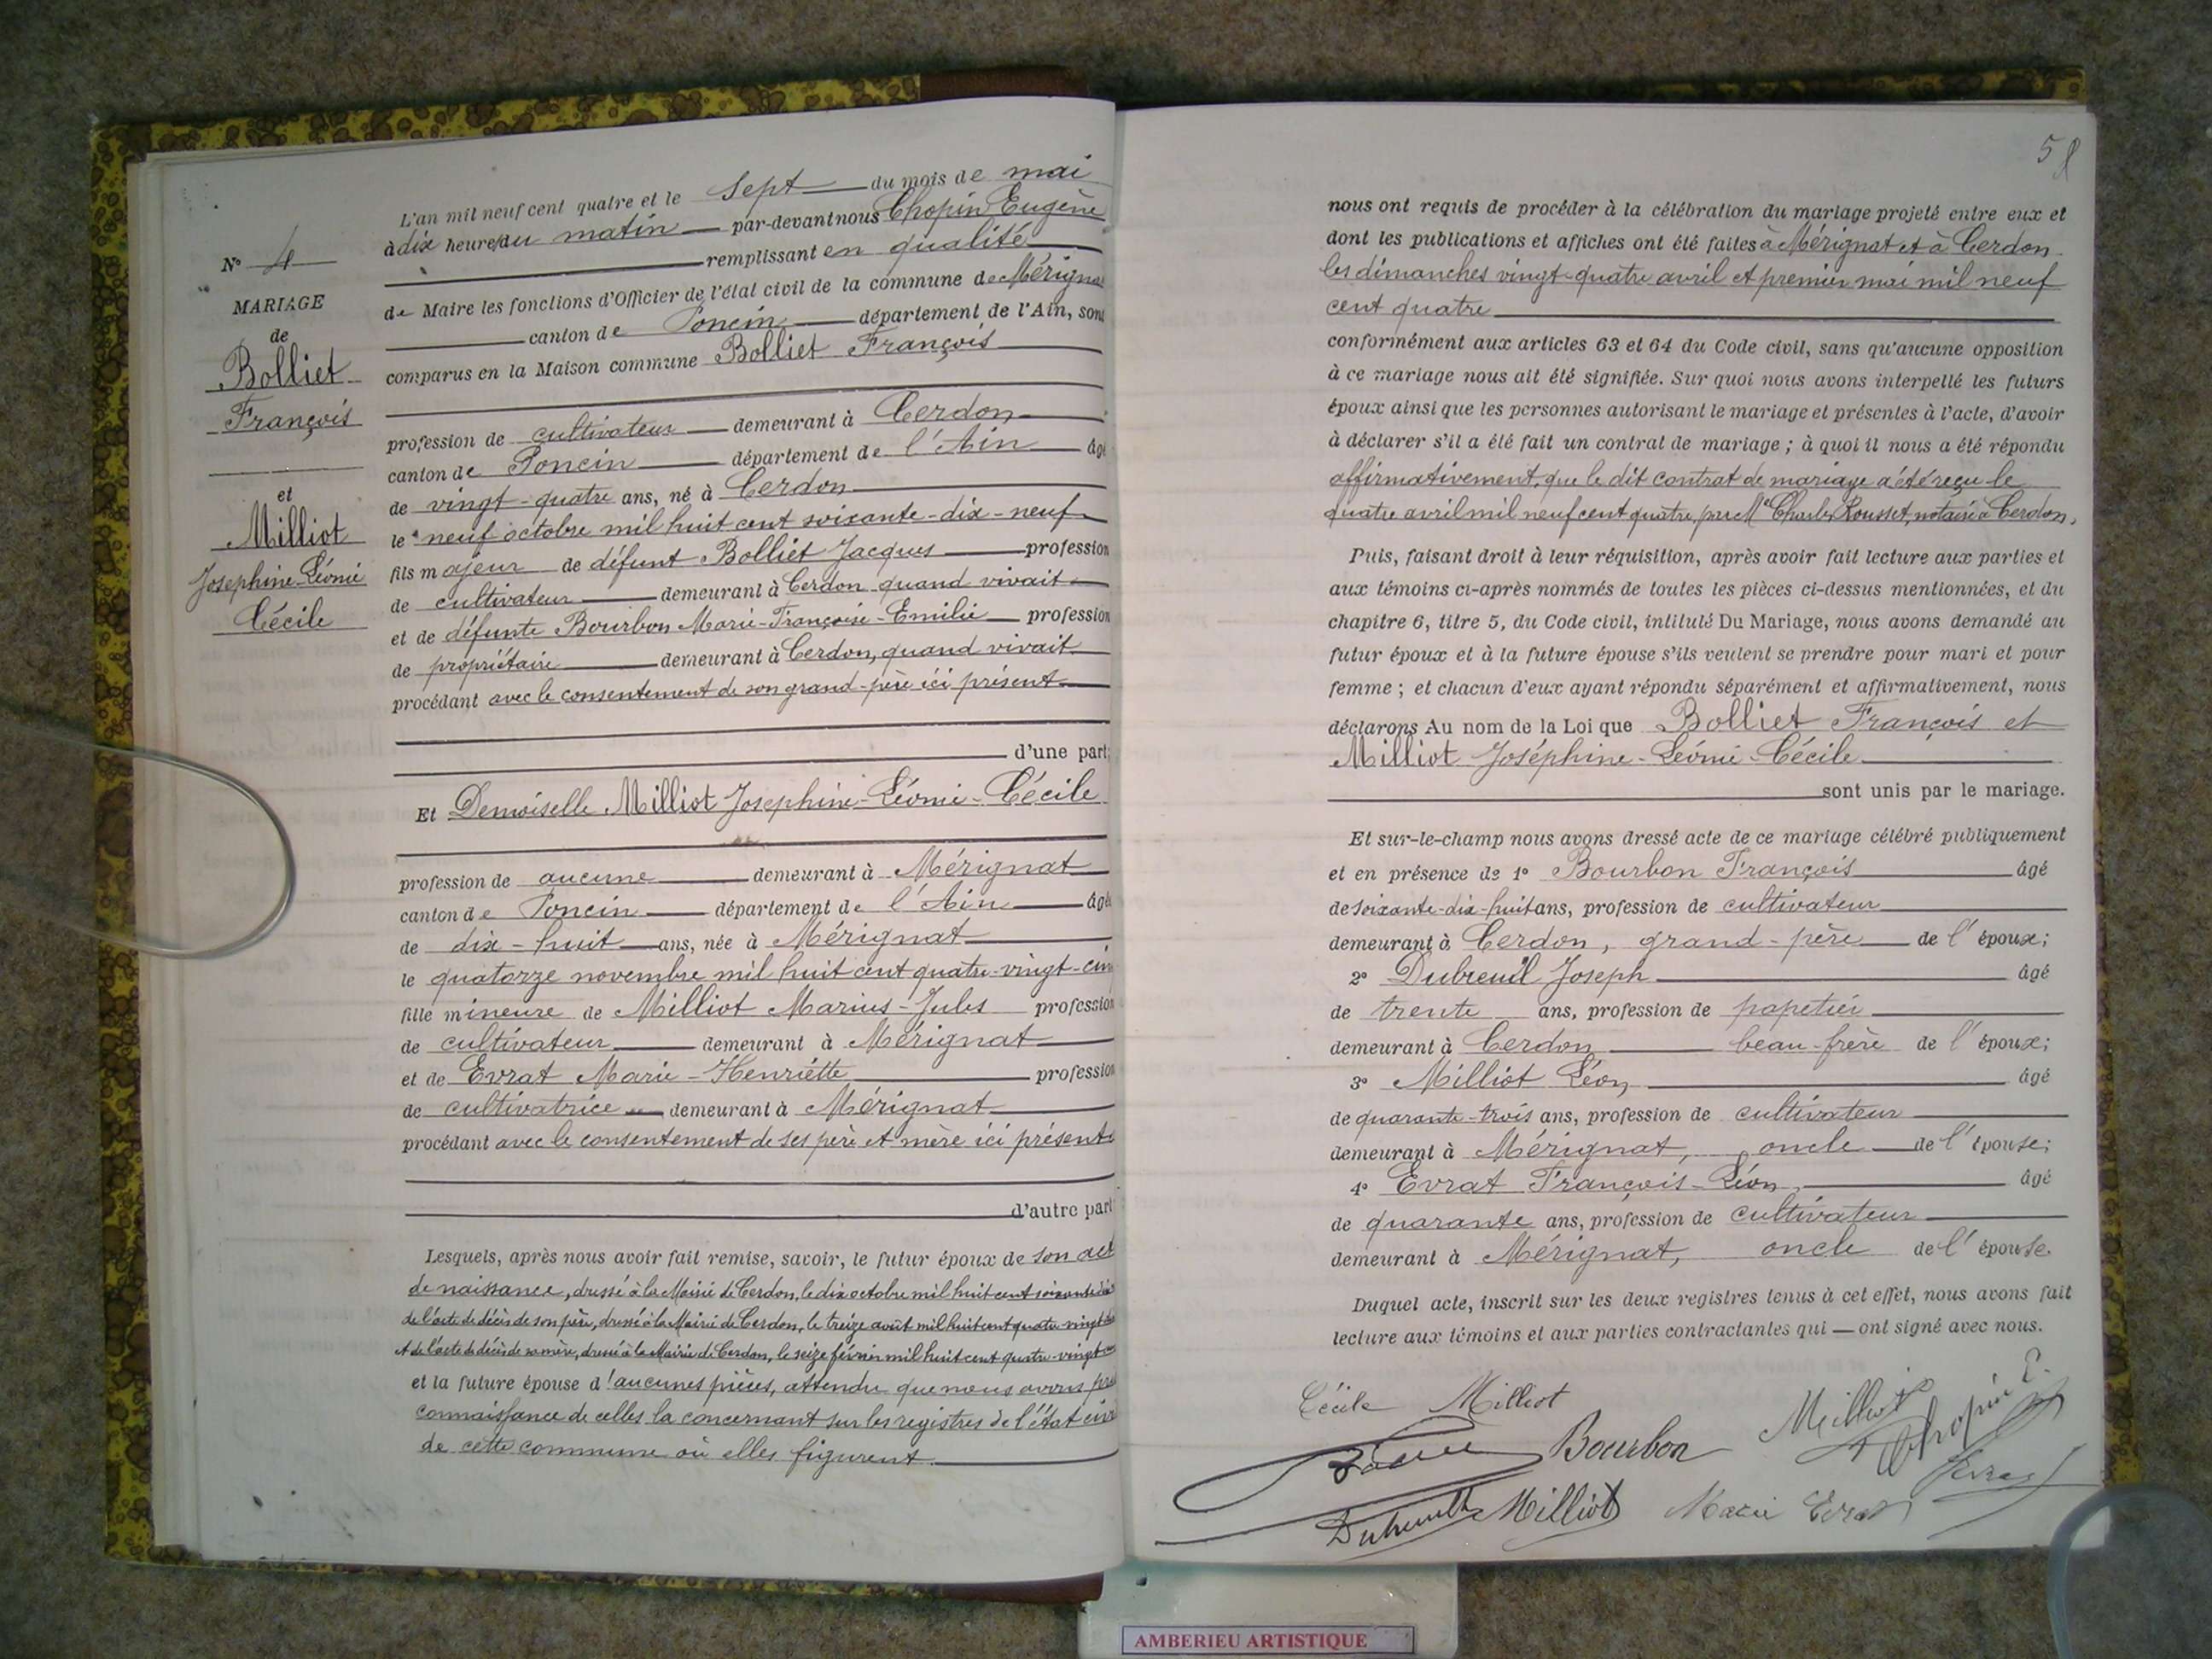 N° 4
MARIAGE
de
Bolliet
François
et
Milliot
Josephine-Léonie
Cécile
L'an mil neuf cent quatre et le sept du mois de mai
à dix heures du matin par-devant nous Chopin Eugène
remplissant en qualité
de Maire les fonctions d'Officier de l'état civil de la commune de Mérignat
canton de Poncin département de l'Ain, sont
comparus en la Maison commune Bolliet François
profession de cultivateur demeurant à Cerdon
canton de Poncin département de l'Ain âgé
de vingt-quatre ans, né à Cerdon
le neuf octobre mil huit cent soixante-dix-neuf
fils majeur de défunt Bolliet Jacques profession
de cultivateur demeurant à Cerdon quand vivait
et de défunte Bourbon Marie-Françoise-Emilie profession
de propriétaire demeurant à Cerdon, quand vivait
procédant avec le consentement de son grand-père ici présent
d'une part;
Et Demoiselle Milliot Josephine-Léonie-Cécile
profession de aucune demeurant à Mérignat
canton de Poncin département de l'Ain âgée
de dix-huit ans, née à Mérignat
le quatorze novembre mil huit cent quatre-vingt-cinq
fille mineure de Milliot Marius-Jules profession
de cultivateur demeurant à Mérignat
et de Evrat Marie-Henriette profession
de cultivatrice demeurant à Mérignat
procédant avec le consentement de ses père et mère ici présents
d'autre part
Lesquels, après nous avoir fait remise, savoir, le futur époux de son acte
de naissance, dressé à la Mairie de Cerdon, le dix octobre mil huit cent soixante-dix
de l'acte de décès de son père, dressé à la Mairie de Cerdon, le treize août mil huit cent quatre-vingt
et de l'acte de décès de sa mère, dressé à la Mairie de Cerdon, le seize février mil huit cent quatre-vingt
et la future épouse d'aucunes pièces, attendu que nous avons pris
connaissance de celles la concernant sur les registres de l'état civil
de cette commune où elles figurent.
nous ont requis de procéder à la célébration du mariage projeté entre eux et
dont les publications et affiches ont été faites à Mérignat et à Cerdon
les dimanches vingt-quatre avril et premier mai mil neuf
cent quatre
conformément aux articles 63 et 64 du Code civil, sans qu'aucune opposition
à ce mariage nous ait été signifiée. Sur quoi nous avons interpellé les futurs
époux ainsi que les personnes autorisant le mariage et présentes à l'acte, d'avoir
à déclarer s'il a été fait un contrat de mariage ; à quoi il nous a été répondu
affirmativement, que le dit contrat de mariage a été reçu le
quatre avril mil neuf cent quatre, par Me Charles Rousset, notaire à Cerdon,
Puis, faisant droit à leur réquisition, après avoir fait lecture aux parties et
aux témoins ci-après nommés de toutes les pièces ci-dessus mentionnées, et du
chapitre 6, titre 5, du Code civil, intitulé Du Mariage, nous avons demandé au
futur époux et à la future épouse s'ils veulent se prendre pour mari et pour
femme ; et chacun d'eux ayant répondu séparément et affirmativement, nous
déclarons Au nom de la Loi que Bolliet François et
Milliot Joséphine-Léonie-Cécile
sont unis par le mariage.
Et sur-le-champ nous avons dressé acte de ce mariage célébré publiquement
et en présence de 1° Bourbon François âgé
de soixante-dix-huit ans, profession de cultivateur
demeurant à Cerdon, grand-père de l'époux;
2° Dubreuil Joseph âgé
de trente ans, profession de papetier
demeurant à Cerdon beau-frère de l'époux;
3° Milliot Léon, âgé
de quarante-trois ans, profession de cultivateur
demeurant à Mérignat, oncle de l'épouse;
4° Evrat François-Léon, âgé
de quarante ans, profession de cultivateur
demeurant à Mérignat, oncle de l'épouse.
Duquel acte, inscrit sur les deux registres tenus à cet effet, nous avons fait
lecture aux témoins et aux parties contractantes qui — ont signé avec nous.
Cécile Milliot
Milliot Chopin E.
Bourbon
Milliot Marie Evrat
AMBERIEU ARTISTIQUE